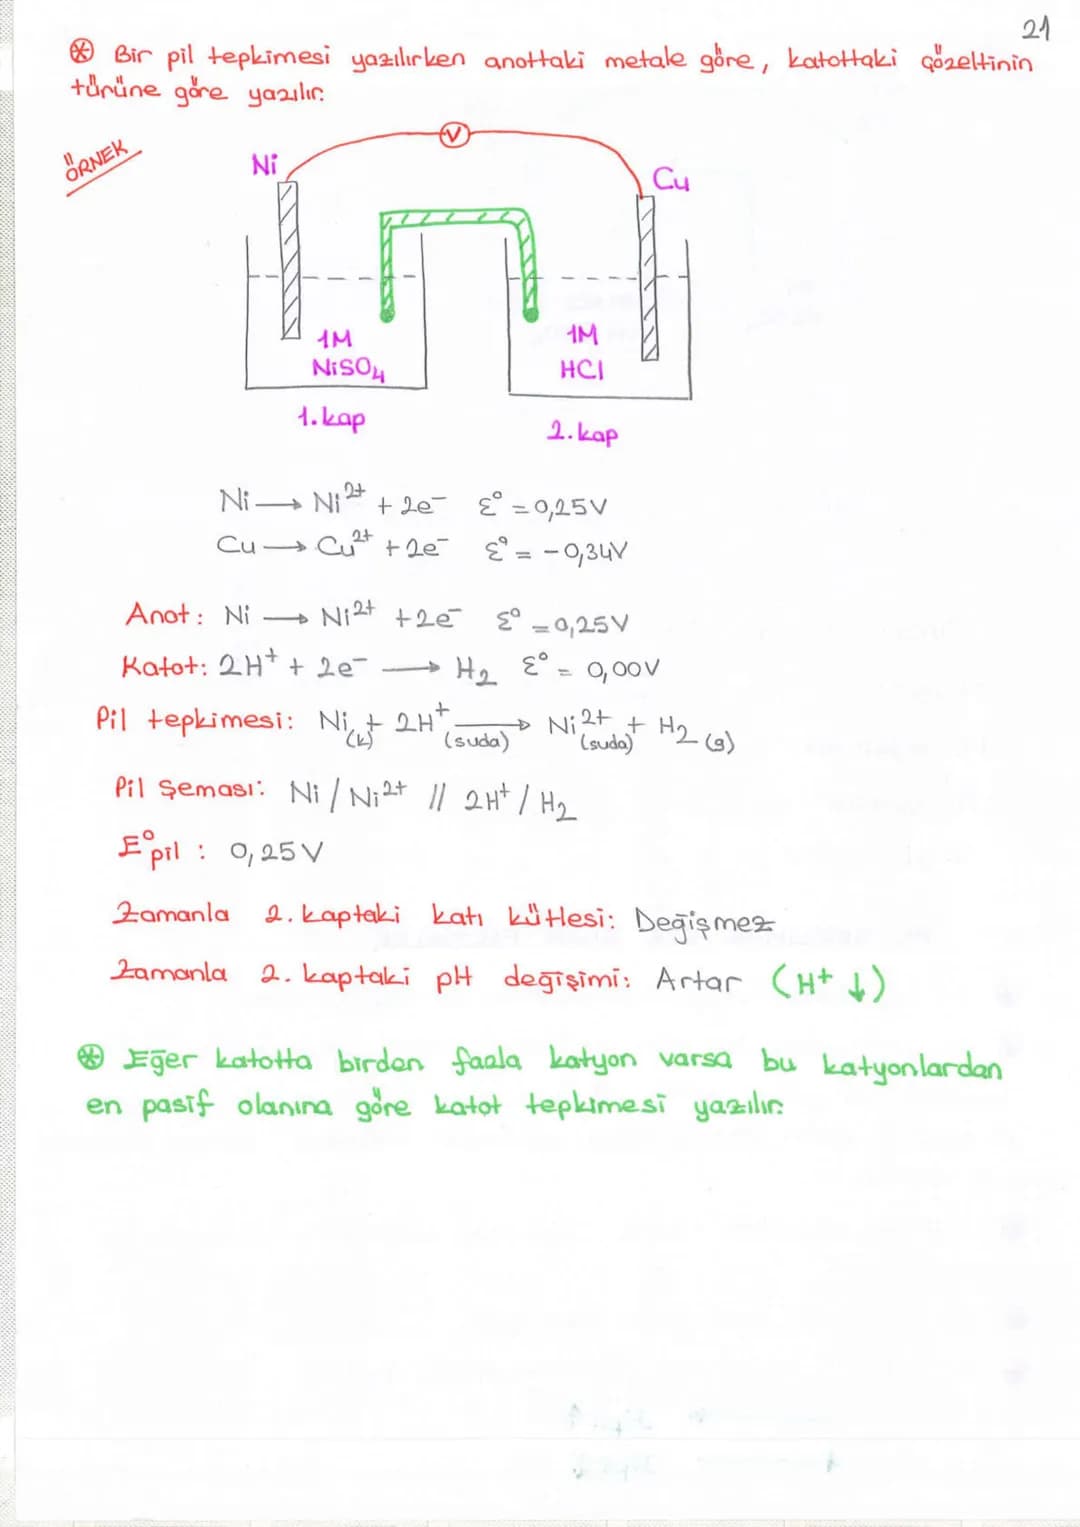 21
⊛ Bir pil tepkimesi yazılırken anottaki metale göre, katottaki çözeltinin
türüne göre yazılır.
ÖRNEK
V
Ni
Cu
1M
NiSO₄
1M
HCl
1. kap
2. kap
Ni → Ni²⁺ + 2e⁻ ε° = 0,25V
Cu → Cu²⁺ + 2e⁻ ε° = -0,34V
Anot: Ni → Ni²⁺ + 2e⁻ ε° = 0,25V
Katot: 2H⁺ + 2e⁻ → H₂ ε° = 0,00V
Pil tepkimesi: Ni(k) + 2H⁺(suda) → Ni²⁺(suda) + H₂(g)
Pil Şeması: Ni / Ni²⁺ // 2H⁺ / H₂
E°pil : 0,25V
Zamanla 2. kaptaki katı kütlesi: Değişmez
Zamanla 2. kaptaki pH değişimi: Artar (H⁺ ↓)
⊛ Eğer katotta birden fazla katyon varsa bu katyonlardan
en pasif olanına göre katot tepkimesi yazılır.